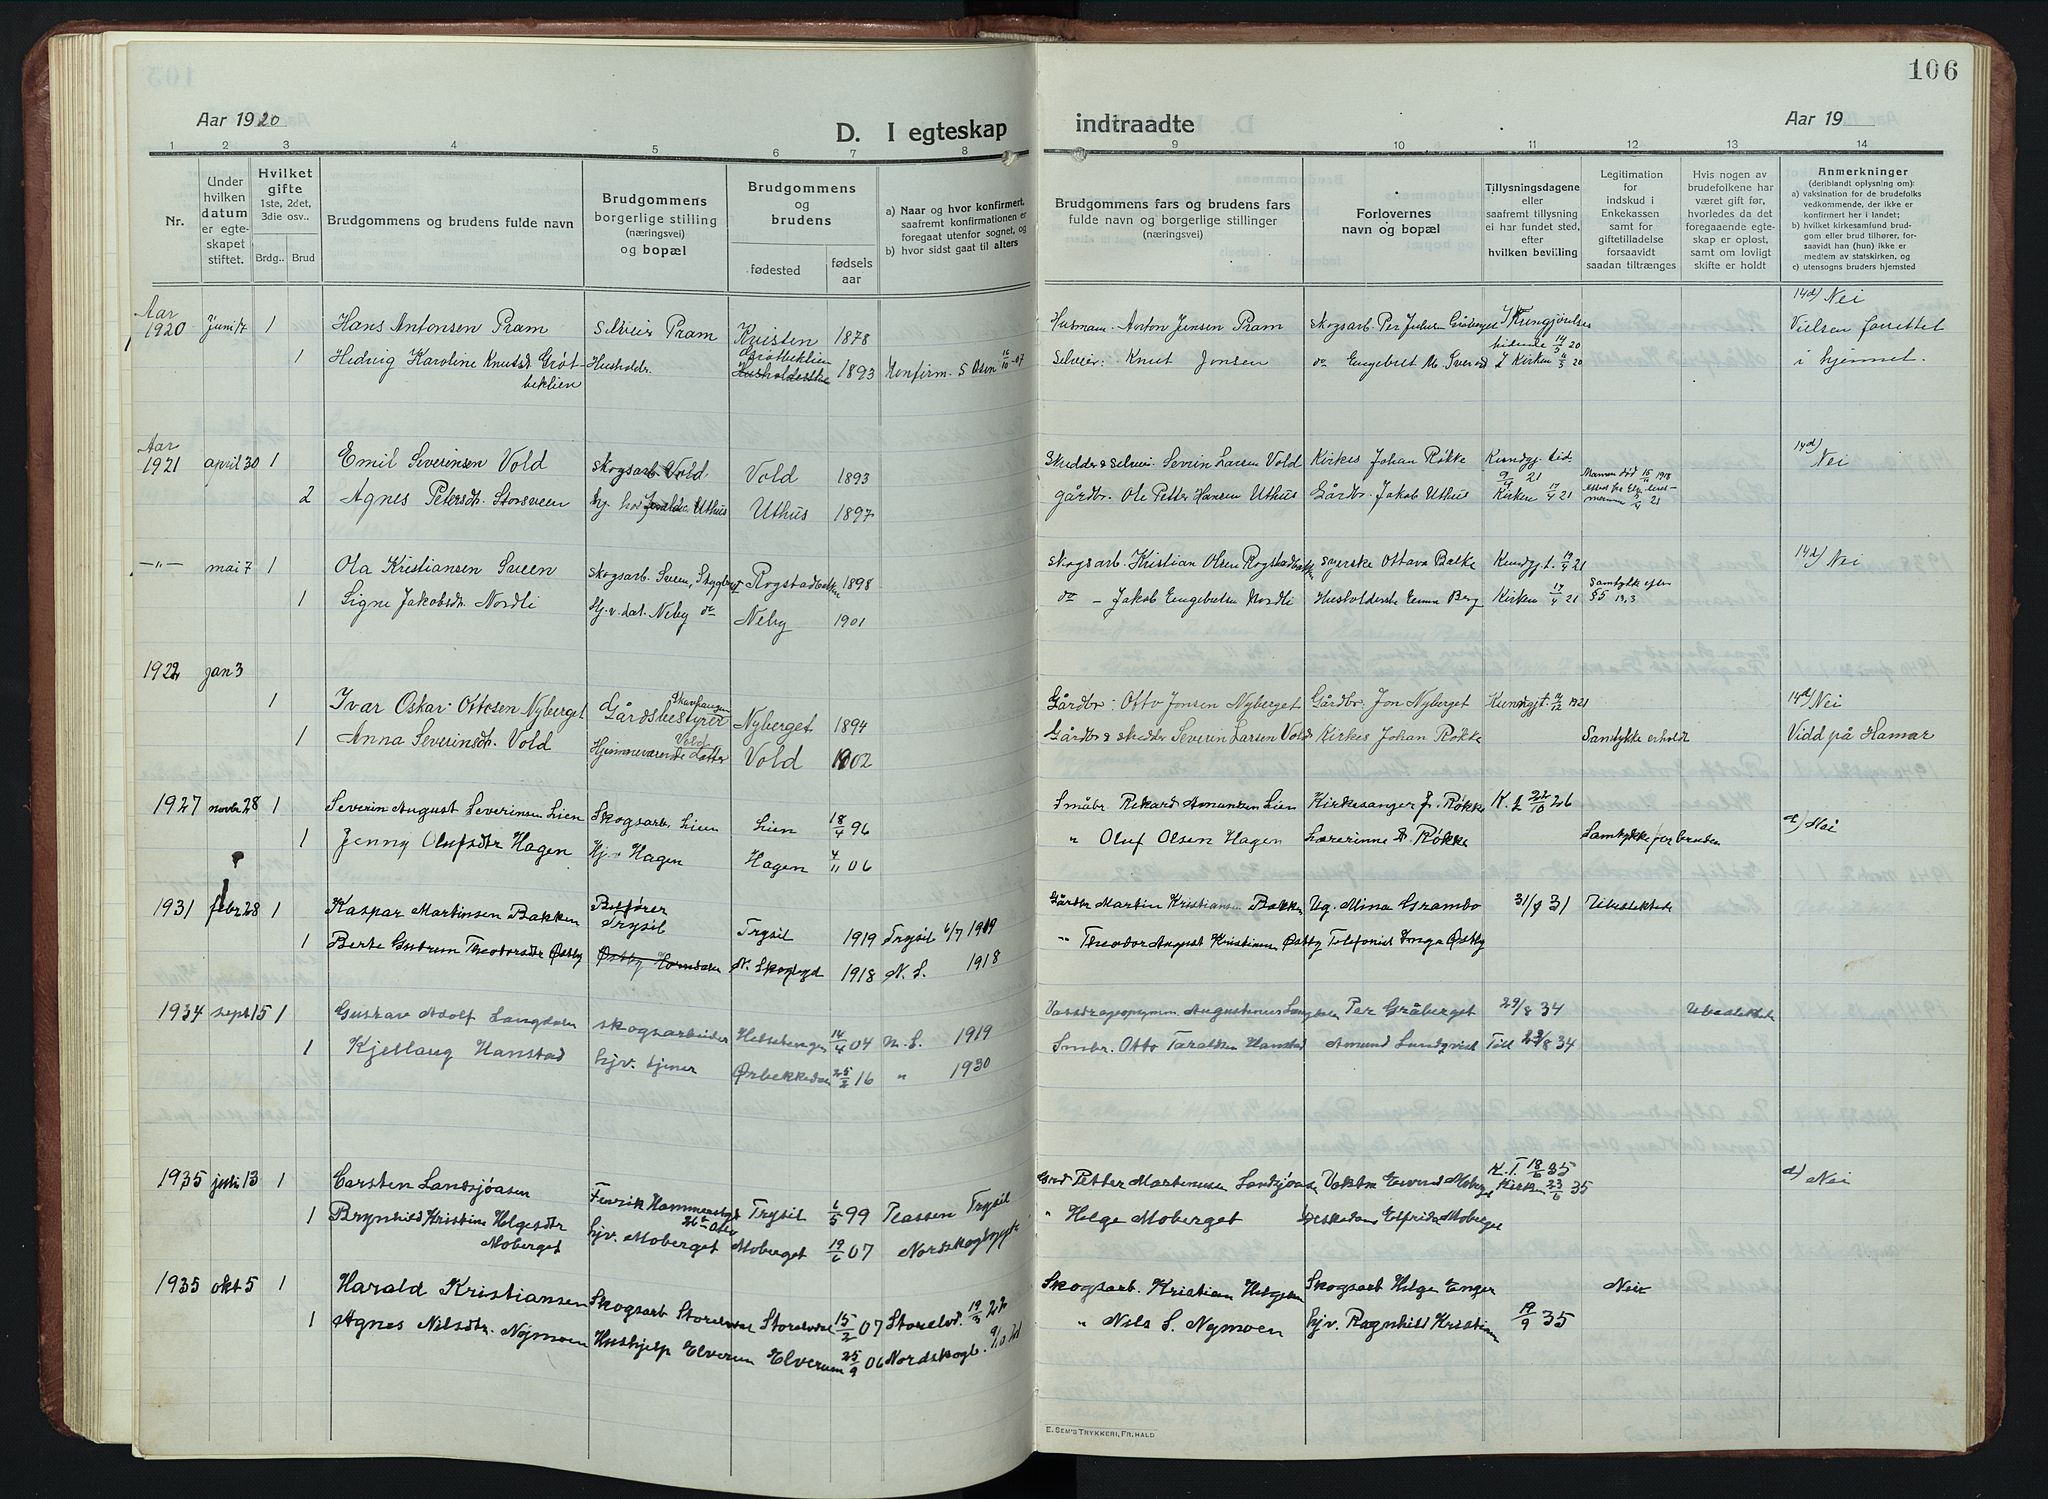 106
Aar 1920
D. I egteskap
indtraadte
Aar 19
1 2 3 4 5 6 7 8 9 10 11 12 13 14
Nr.
Under hvilken datum er egteskapet stiftet.
Hvilket gifte 1ste, 2det, 3die osv..
Brdg.. Brud
Brudgommens og brudens fulde navn
Brudgommens borgerlige stilling (næringsvei) og bopæl
Brudgommens og brudens
fødested
fødsels aar
a) Naar og hvor konfirmert, saafremt konfirmationen er foregaat utenfor sognet, og
b) hvor sidst gaat til alters
Brudgommens fars og brudens fars fulde navn og borgerlige stillinger (næringsvei)
Forlovernes navn og bopæl
Tillysningsdagene eller saafremt tillysning ei har fundet sted, efter hvilken bevilling
Legitimation for indskud i Enkekassen samt for giftetilladelse forsaavidt saadan tiltrænges
Hvis nogen av brudefolkene har været gift før, hvorledes da det foregaaende egteskap er opløst, samt om lovligt skifte er holdt
Anmerkninger (deriblandt oplysning om):
a) vaksination for de brudefolks vedkommende, der ikke er konfirmert her i landet;
b) hvilket kirkesamfund brudgom eller brud tilhører, forsaavidt han (hun) ikke er medlem av statskirken, og
c) utensogns bruders hjemsted
Aar 1920 Juni 17 1 Hans Antonsen Pram Selveier Pram Kvisten 1878 Husmann Anton Jensen Pram Skogsarb. Per Juliussen 14d) Nei
1 Hedvig Karoline Knutsd. Grøtbeklien Husholdr. Grøtbeklien 1893 Konfirm. S Osen 16/10-07 Selveier: Knut Jonsen do Engebret M. I Kirken 20 Vielsen forrettet i hjemmet.
Aar 1921 april 30 1 Emil Severinsen Vold Skogsarb. Vold. Vold 1893 Skredder & Selveier Severin Larsen Vold Kirkes Johan Røkke Kundgj. tid. 21 14d) Nei
2 Agnes Petersdtr. Storsveen hj. hos Uthus Uthus 1897 gårdbr. Ole Petter Hansen Uthus Gårdbr. Jakob Uthus Kirken 17/4 21 Mannen død 1918
—"— mai 7 1 Ola Kristiansen Sveen Skogsarb. Sveen, Rogstadbakken 1898 Skogsarb Kristian Olsen Rogstadbakken Syerske Ottava Bakke Kundgj. t. 14/4 21 14d) Nei
1 Signe Jakobsdtr. Nordli Hj.v. dat. Neby do Neby 1901 do — Jakob Engebretsen Nordli Husholderske Emma Berg Kirken 17/4 21 Samtykke efter §5
1922 jan 3
1 Ivar Oskar Ottosen Nyberget Gårdsbestyrer Nyberget 1894 Gårdbr: Otto Jonsen Nyberget Gårdbr. Jon Nyberget Kundgj t. 1921 14d) Nei
1 Anna Severinsdtr. Vold Hjemmeværende datter Vold Vold 1902 Gårdbr & skredder Severin Larsen Vold Kirkes Johan Røkke Samtykke erholdt Viddpå Hamar
1927 novbr 28 1 Severin August Severinsen Lien Skogsarb. Lien Lien 18/4 96 Småbr. Rikard Amundsen Lien Kirkesanger J. Røkke K. t. 22/10 26 d) Nei
1 Jenny Olufsdtr Hagen Hj. Hagen Hagen 4/11 06 " Oluf Olsen Hagen Lærerinne A. Røkke Samtykke for bruden
1931 febr 28 1 Kaspar Martinsen Bakken Trysil Trysil 1919 Trysil 6/7 1919 Gårdbr Martin Kristiansen Bakken Ug. Mina Grambo 31 Ubeslektede
1 Berte Gudrun Theodorsdtr Østby Østby N. Skogbygd 1918 N. S. 1918 " Theodor August Kristiansen Østby Telefonist Inga Østby
1934 sept 15 1 Gustav Adolf Langdalen skogsarbeider 14/4 04 N. S. 1919 Augustinus Langdalen Per Gråberget 29/8 34 Ubeslektede
1 Kjellaug Hanstad hjv. tjener Ørbekkedalen 25/2 16 " 1930 Smbr. Otto Taralsen Hanstad Amund Lundqvist Till 23/8 34
1935 juli 13 1 Carsten Landsjøåsen Fenrik Trysil 6/5 99 Plassen Trysil Grdbr Petter Martinusen Landsjøåsen Eivind Moberget K. T. 18/6 35 d) Nei
1 Brynhild Kristine Helgesdtr Moberget hjv. Moberget Moberget 19/6 07 Nordskogbygda " Helge Moberget Elfrida Moberget Kirken 23/6 35
1935 okt 5 1 Harald Kristiansen Skogsarb Storelvdal Storelvdal 15/2 07 Storelvd. 19/3 22 Skogsarb. Kristian Helgesen Skogsarb Helge Enger Nei
1 Agnes Nilsdtr. Nymoen Hushjelp Elverum Elverum 25/9 06 Nordskogb. " Nils S. Nymoen hjv. Ragnhild Kristiansen 19/9 35
E. SEM'S TRYKKERI, FR.HALD